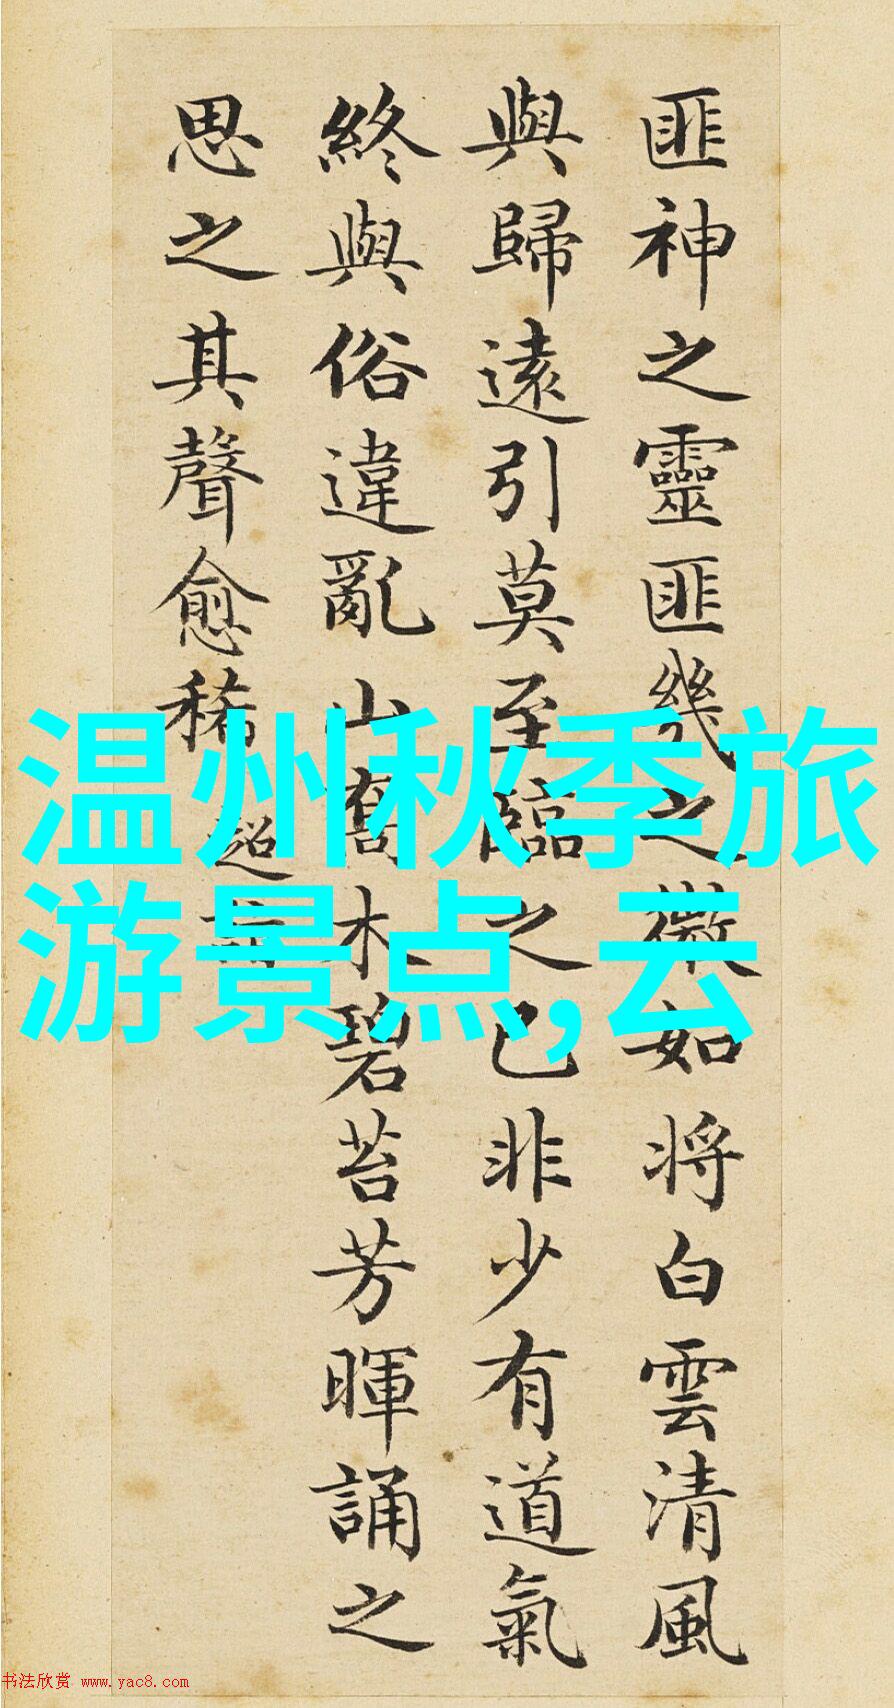 匪神之靈匪幾之微如将白雲清風
與歸遠引莫至臨之已非少有道氣
終與俗違亂山喬木碧苔芳暉誦之
思之其聲愈稀
超
温州秋季旅
游景点,云
书法欣赏 www.yac8.com